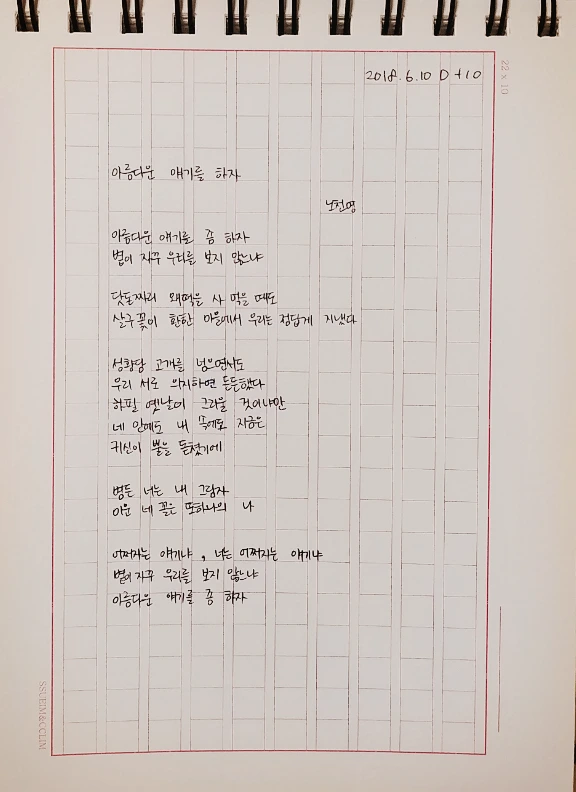 2018.6.10 D+10
22 x 10
아름다운 얘기를 하자
노천명
아름다운 얘기를 좀 하자
별이 자꾸 우리를 보지 않느냐
닷돈짜리 왜떡을 사 먹을 때도
살구꽃이 환한 마을에서 우리는 정답게 지냈다
성황당 고개를 넘으면서도
우리 서로 의지하면 든든했다
하필 옛날이 그리울 것이냐만
네 안에도 내 속에도 지금은
귀신이 뿔을 돋쳤기에
병든 너는 내 그림자
미운 네 꼴은 또하나의 나
어쩌자는 얘기냐, 너는 어쩌자는 얘기냐
별이 자꾸 우리를 보지 않느냐
아름다운 얘기를 좀 하자